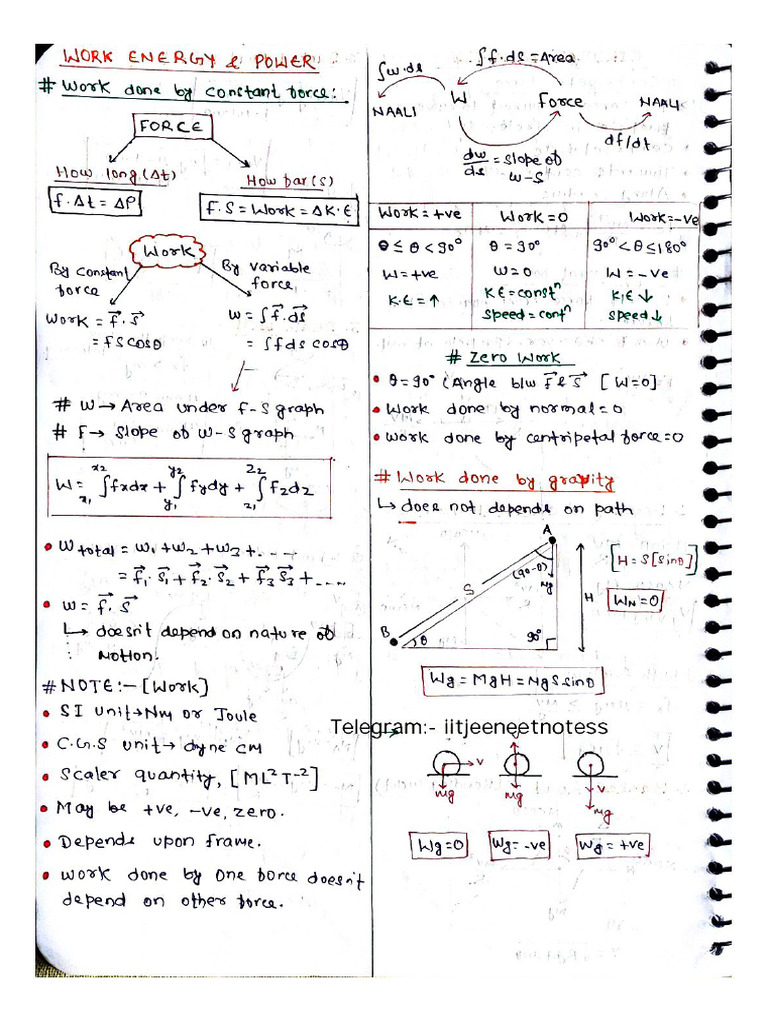 WORK ENERGY & POWER
# Work done by constant force:
FORCE
How long (Δt)
How far (S)
F.Δt = ΔP
F.S = Work = ΔK.E
Work
By constant force
By variable force
Work = F⃗.S⃗
= FS cosθ
W = ∫F⃗.ds⃗
= ∫Fds cosθ
# W → Area under F-S graph
# F → Slope of W-S graph
W = x1∫x2 Fxdx + y1∫y2 Fydy + z1∫z2 Fzdz
• W total = W1 + W2 + W3 + ....
= F⃗1.S⃗1 + F⃗2.S⃗2 + F⃗3.S⃗3 + ....
• W = F⃗.S⃗
↳ doesn't depend on nature of
Motion.
# NOTE:- [Work]
• SI Unit → Nm or Joule
• C.G.S unit → dyne cm
• Scaler quantity, [ML²T⁻²]
• May be +ve, -ve, zero.
• Depends upon frame.
• Work done by one force doesn't
depend on other force.
∫F.ds = Area
∫w.ds
NAALI
W
Force
NAALI
dF/dt
dw/ds = slope of
W-S
Work = +ve
Work = 0
Work = -ve
0 ≤ θ < 90°
θ = 90°
90° < θ ≤ 180°
W = +ve
W = 0
W = -ve
K.E = ↑
KE = constⁿ
K.E ↓
Speed = contⁿ
Speed ↓
# Zero Work
• θ = 90° (Angle b/w F⃗ & S⃗ [W=0]
• Work done by normal = 0
• Work done by centripetal force = 0
# Work done by gravity
↳ does not depends on path
A
(90-θ)
Mg
S
H
[H = S[sinθ]]
WN = 0
B
θ
90°
Wg = MgH = MgS sinθ
Telegram:- iitjeeneetnotess
V
mg
mg
V
mg
Wg = 0
Wg = -ve
Wg = +ve